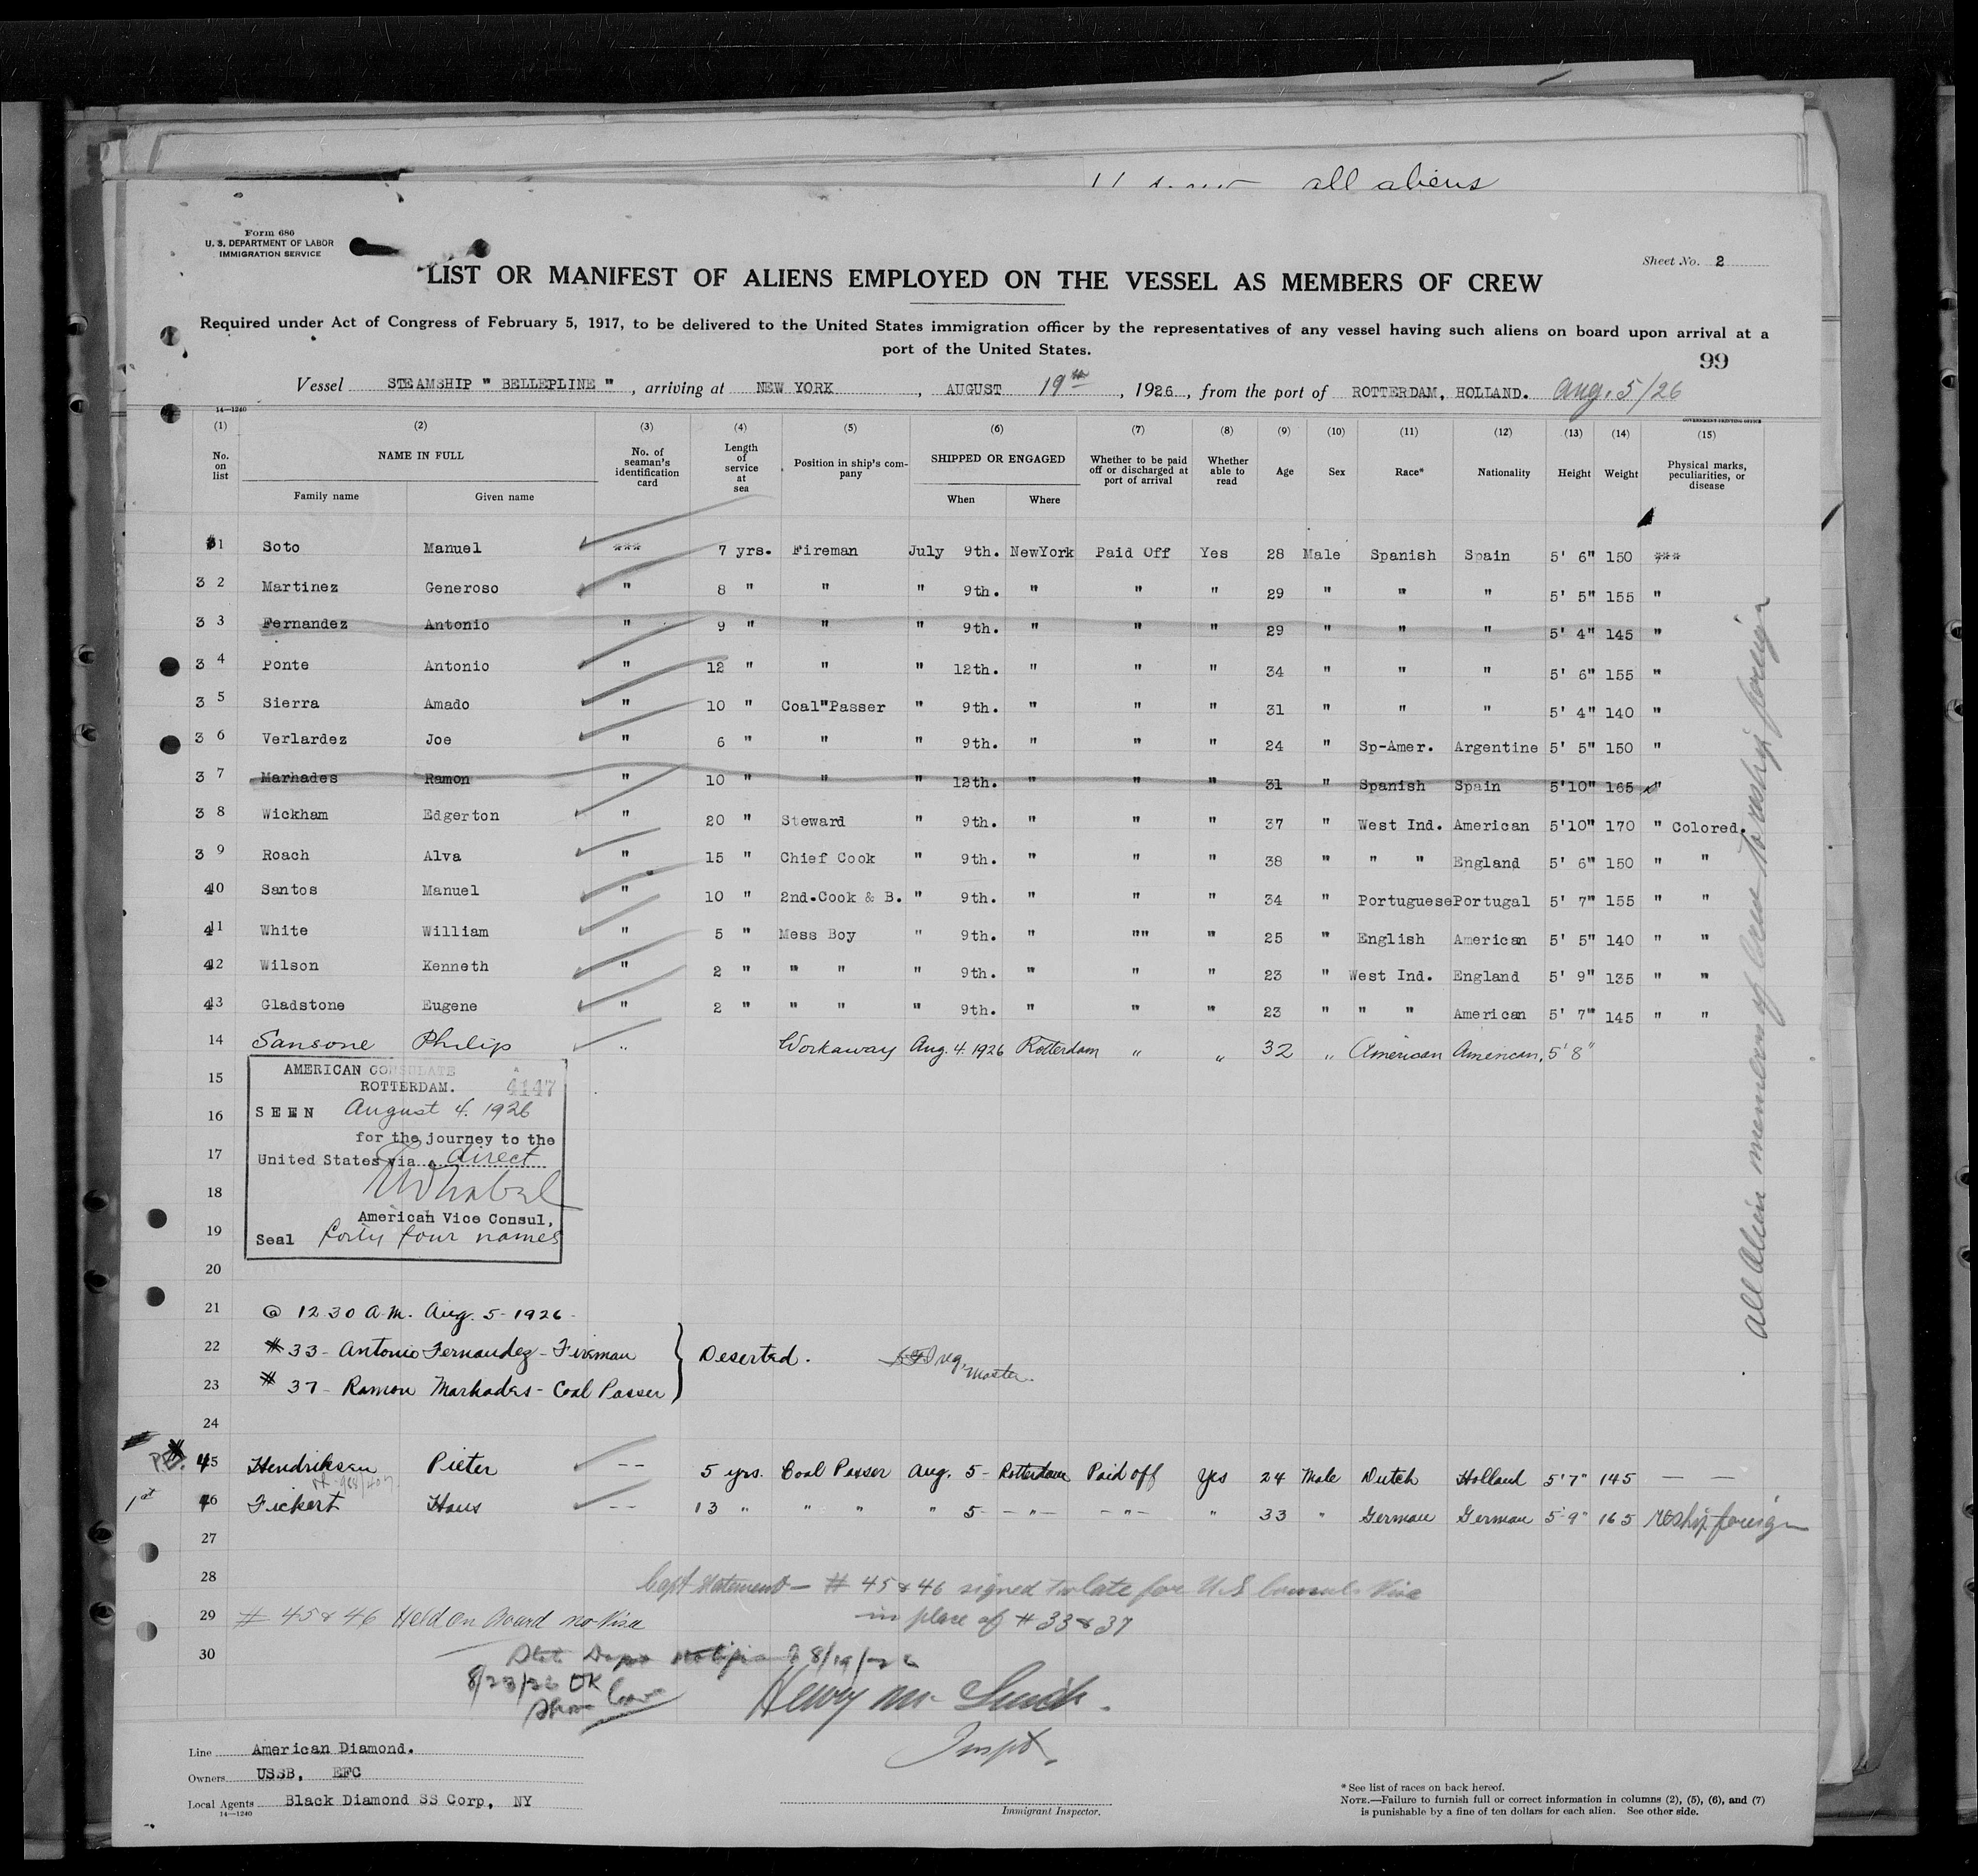 all aliens
Form 680
U. S. DEPARTMENT OF LABOR
IMMIGRATION SERVICE
Sheet No. 2
LIST OR MANIFEST OF ALIENS EMPLOYED ON THE VESSEL AS MEMBERS OF CREW
Required under Act of Congress of February 5, 1917, to be delivered to the United States immigration officer by the representatives of any vessel having such aliens on board upon arrival at a
port of the United States.
99
Vessel STEAMSHIP " BELLEPLINE ", arriving at NEW YORK, AUGUST 19th, 1926, from the port of ROTTERDAM, HOLLAND. Aug. 5/26
14—1240
GOVERNMENT PRINTING OFFICE
(1) (2) (3) (4) (5) (6) (7) (8) (9) (10) (11) (12) (13) (14) (15)
No. on list NAME IN FULL Family name Given name No. of seaman's identification card Length of service at sea Position in ship's company SHIPPED OR ENGAGED When Where Whether to be paid off or discharged at port of arrival Whether able to read Age Sex Race* Nationality Height Weight Physical marks, peculiarities, or disease
31 Soto Manuel *** 7 yrs. Fireman July 9th. NewYork Paid Off Yes 28 Male Spanish Spain 5' 6" 150 ***
3 2 Martinez Generoso " 8 " " " 9th. " " " 29 " " " 5' 5" 155 "
3 3 Fernandez Antonio " 9 " " " 9th. " " " 29 " " " 5' 4" 145 "
3 4 Ponte Antonio " 12 " " " 12th. " " " 34 " " " 5' 6" 155 "
3 5 Sierra Amado " 10 " Coal"Passer " 9th. " " " 31 " " " 5' 4" 140 "
3 6 Verlardez Joe " 6 " " " 9th. " " " 24 " Sp-Amer. Argentine 5' 5" 150 "
3 7 Marhades Ramon " 10 " " " 12th. " " " 31 " Spanish Spain 5'10" 165 "
3 8 Wickham Edgerton " 20 " Steward " 9th. " " " 37 " West Ind. American 5'10" 170 " Colored.
3 9 Roach Alva " 15 " Chief Cook " 9th. " " " 38 " " " England 5' 6" 150 " "
40 Santos Manuel " 10 " 2nd.Cook & B. " 9th. " " " 34 " Portuguese Portugal 5' 7" 155 " "
411 White William " 5 " Mess Boy " 9th. " "" " 25 " English American 5' 5" 140 " "
412 Wilson Kenneth " 2 " " " " 9th. " " " 23 " West Ind. England 5' 9" 135 " "
413 Gladstone Eugene " 2 " " " " 9th. " " " 23 " " " American 5' 7" 145 " "
14 Sansone Philip " Workaway Aug. 4. 1926 Rotterdam " " 32 " American American, 5'8"
15 AMERICAN CONSULATE
ROTTERDAM. 4147
16 SEEN August 4. 1926
for the journey to the
17 United States via direct
18
American Vice Consul,
19 Seal forty four names
20
21 @ 12.30 A.M. Aug. 5-1926-
22 #33- Antonio Fernandez - Fireman
Deserted. Master.
23 # 37- Ramon Markades - Coal Passer
24
45 Hendriksen Pieter -- 5 yrs. Coal Passer Aug. 5- Rotterdam Paid off yes 24 Male Dutch Holland 5'7" 145 — —
1st 46 Fickert Hans -- 13 " " " " 5- -"- -"- " 33 " German German 5'9" 165 reship foreign
27
28 Capt Statement — # 45 & 46 signed too late for U.S Consul Visa
in place of # 33 & 37
29 # 45 & 46 Held on Board no Visa
30 State Dept 8/19/26
8/23/26 OK
Henry
Inspt.
all Alien members of Crew to reship foreign
Line American Diamond.
Owners USSB, EFC
Local Agents Black Diamond SS Corp, NY
14—1240
Immigrant Inspector.
* See list of races on back hereof.
NOTE.—Failure to furnish full or correct information in columns (2), (5), (6), and (7)
is punishable by a fine of ten dollars for each alien. See other side.